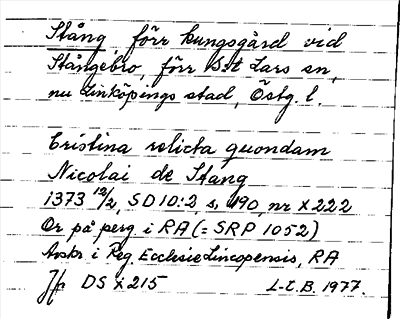 Stång, förr kungsgård vid
Stångebro, förr S:t Lars sn,
nu Linköpings stad, Östg. l.
Cristina relicta quondam
Nicolai de Stang
1373 12/2, SD 10:2, s. 190, nr X 222
Or på perg i RA (= SRP 1052)
Avskr i Reg. Ecclesie Lincopensis, RA
Jfr DS X 215
L-E.B. 1977.